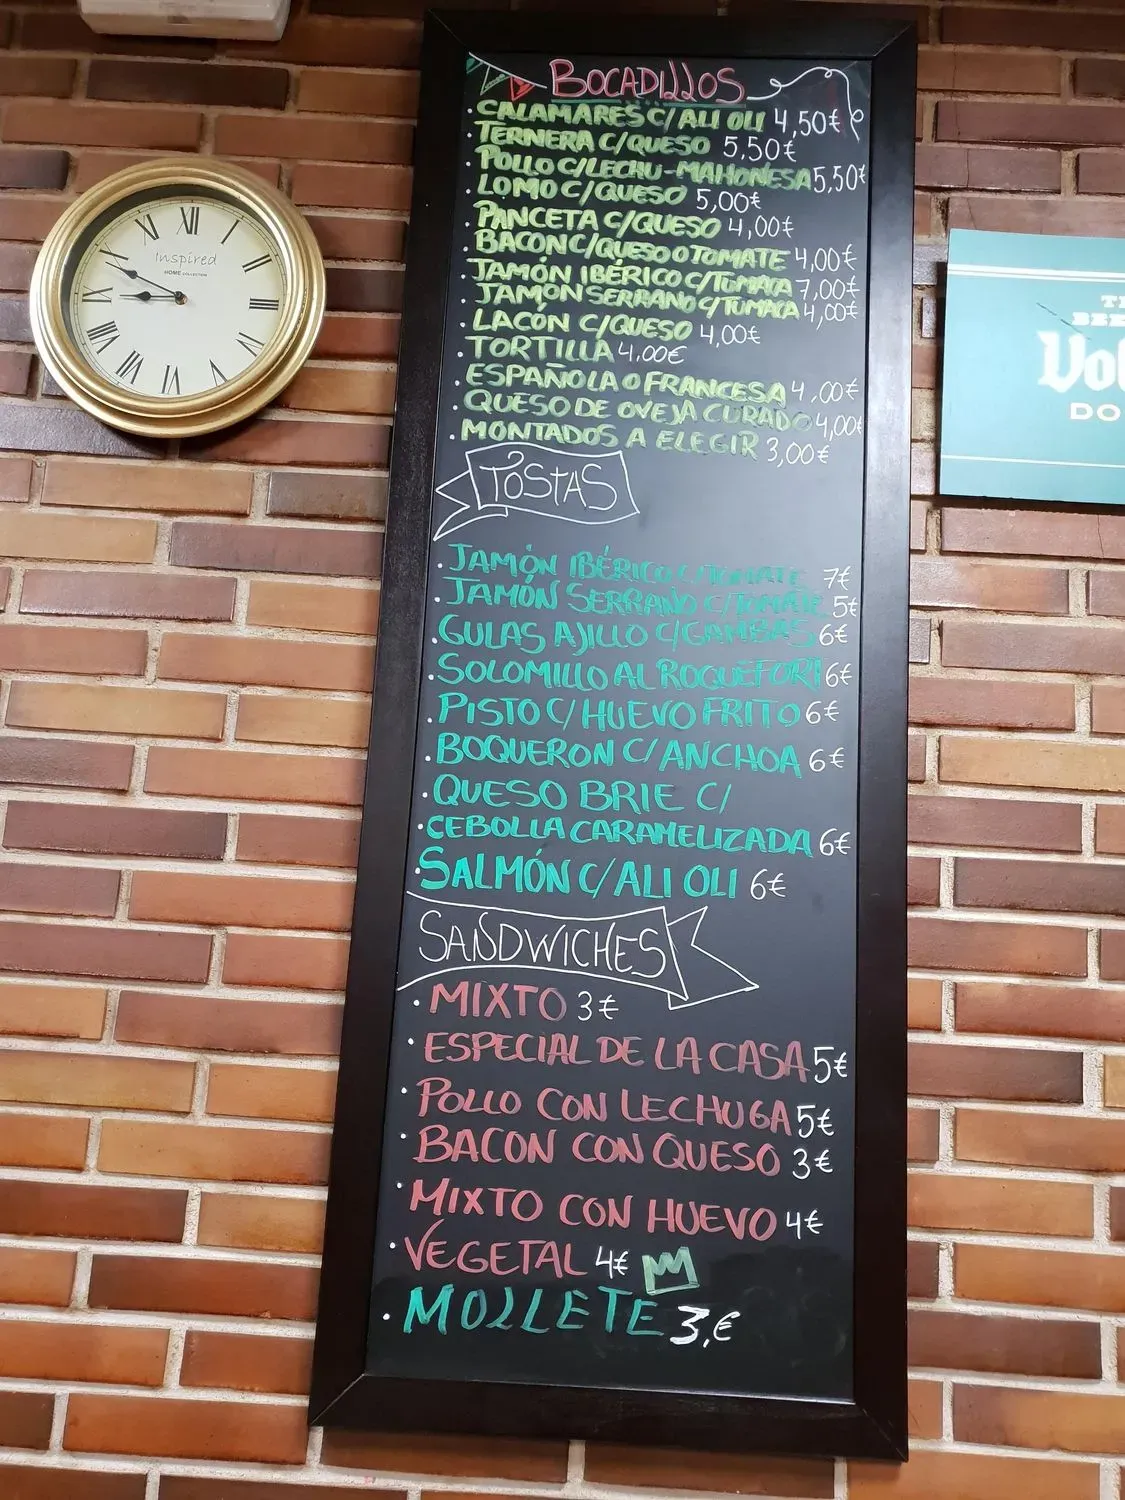 BOCADILLOS
· CALAMARES C/ALI OLI 4,50€
· TERNERA C/QUESO 5,50€
· POLLO C/LECHU-MAHONESA 5,50€
· LOMO C/QUESO 5,00€
· PANCETA C/QUESO 4,00€
· BACON C/QUESO O TOMATE 4,00€
· JAMÓN IBÉRICO C/TUMACA 7,00€
· JAMON SERRANO C/TUMACA 4,00€
· LACÓN C/QUESO 4,00€
· TORTILLA 4,00€
· ESPAÑOLA O FRANCESA 4,00€
· QUESO DE OVEJA CURADO 4,00€
· MONTADOS A ELEGIR 3,00€
TOSTAS
· JAMÓN IBÉRICO C/TOMATE 7€
· JAMÓN SERRANO C/TOMATE 5€
· GULAS AJILLO C/GAMBAS 6€
· SOLOMILLO AL ROQUEFORT 6€
· PISTO C/HUEVO FRITO 6€
· BOQUERON C/ANCHOA 6€
· QUESO BRIE C/
· CEBOLLA CARAMELIZADA 6€
· SALMÓN C/ALI OLI 6€
SANDWICHES
· MIXTO 3€
· ESPECIAL DE LA CASA 5€
· POLLO CON LECHUGA 5€
· BACON CON QUESO 3€
· MIXTO CON HUEVO 4€
· VEGETAL 4€
· MOLLETE 3,€
XII
I
II
III
IIII
V
VI
VII
VIII
IX
X
XI
Inspired
HOME COLLECTION